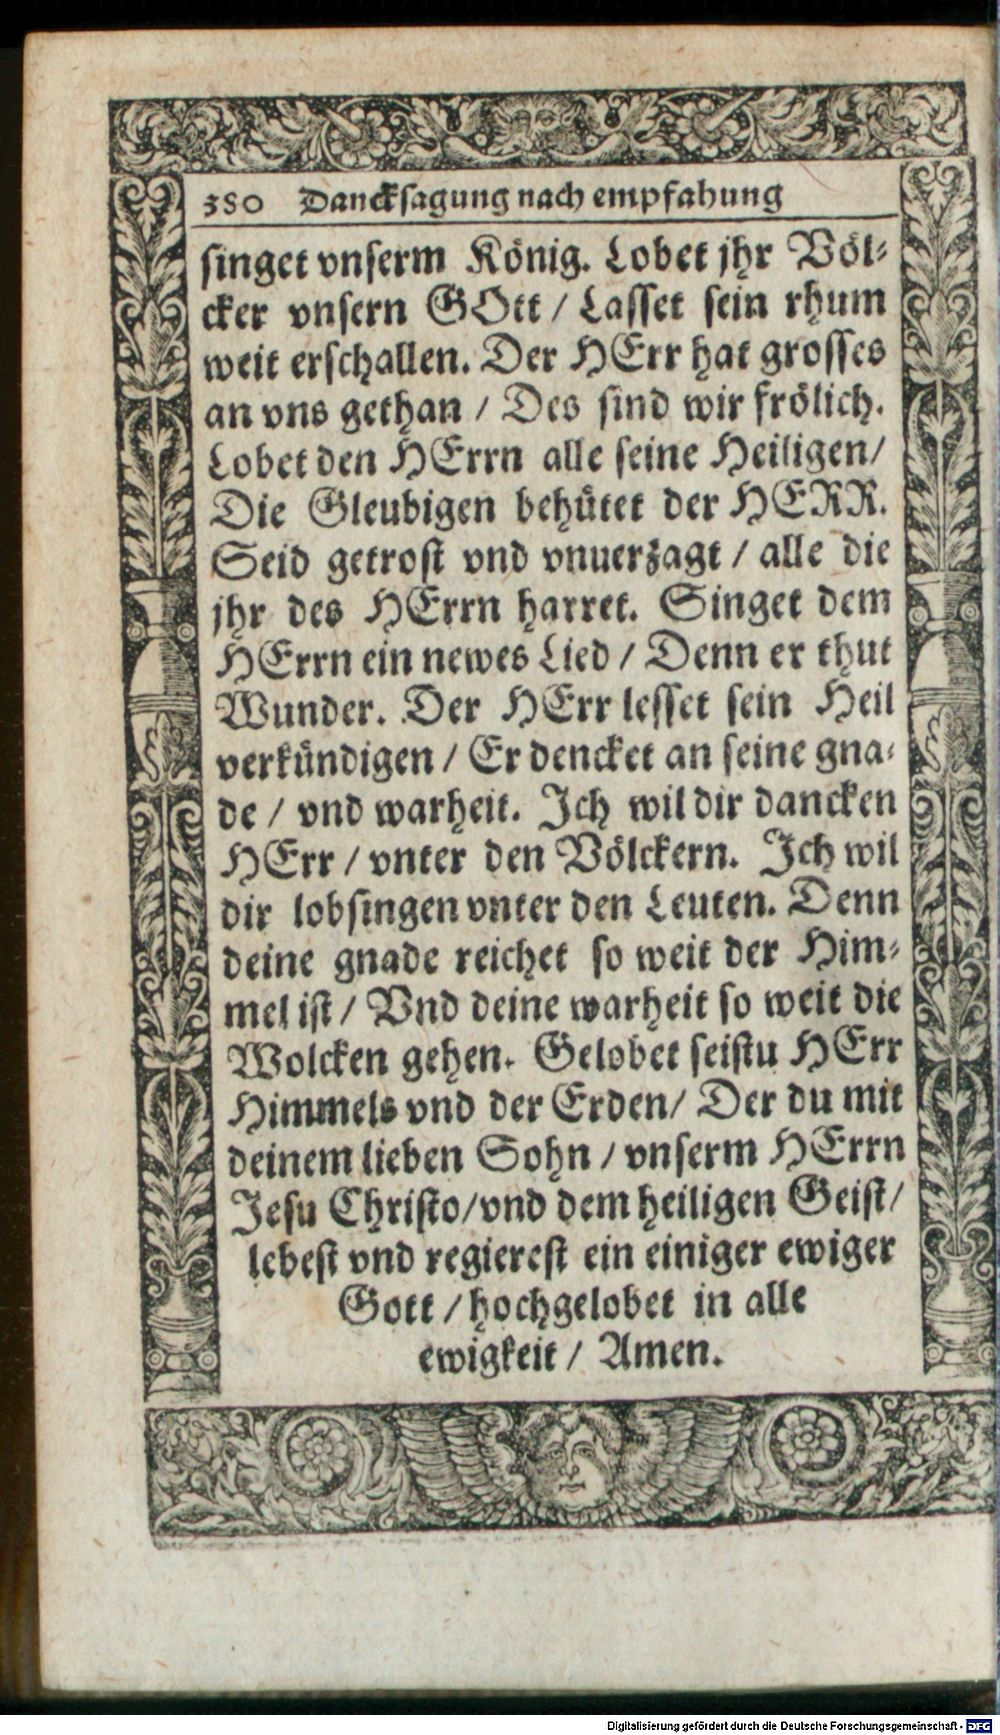 380 Dancksagung nach empfahung
singet vnserm König. Lobet jhr Völ-
cker vnsern GOtt / Lasset sein rhum
weit erschallen. Der HErr hat grosses
an vns gethan / Des sind wir frölich.
Lobet den HErrn alle seine Heiligen/
Die Gleubigen behütet der HERR.
Seid getrost vnd vnuerzagt / alle die
jhr des HErrn harret. Singet dem
HErrn ein newes Lied / Denn er thut
Wunder. Der HErr lesset sein Heil
verkündigen / Er dencket an seine gna-
de / vnd warheit. Ich wil dir dancken
HErr / vnter den Völckern. Ich wil
dir lobsingen vnter den Leuten. Denn
deine gnade reichet so weit der Him-
mel ist / Vnd deine warheit so weit die
Wolcken gehen. Gelobet seistu HErr
Himmels vnd der Erden/ Der du mit
deinem lieben Sohn / vnserm HErrn
Jesu Christo/vnd dem heiligen Geist/
lebest vnd regierest ein einiger ewiger
Gott / hochgelobet in alle
ewigkeit / Amen.
Digitalisierung gefördert durch die Deutsche Forschungsgemeinschaft - DFG